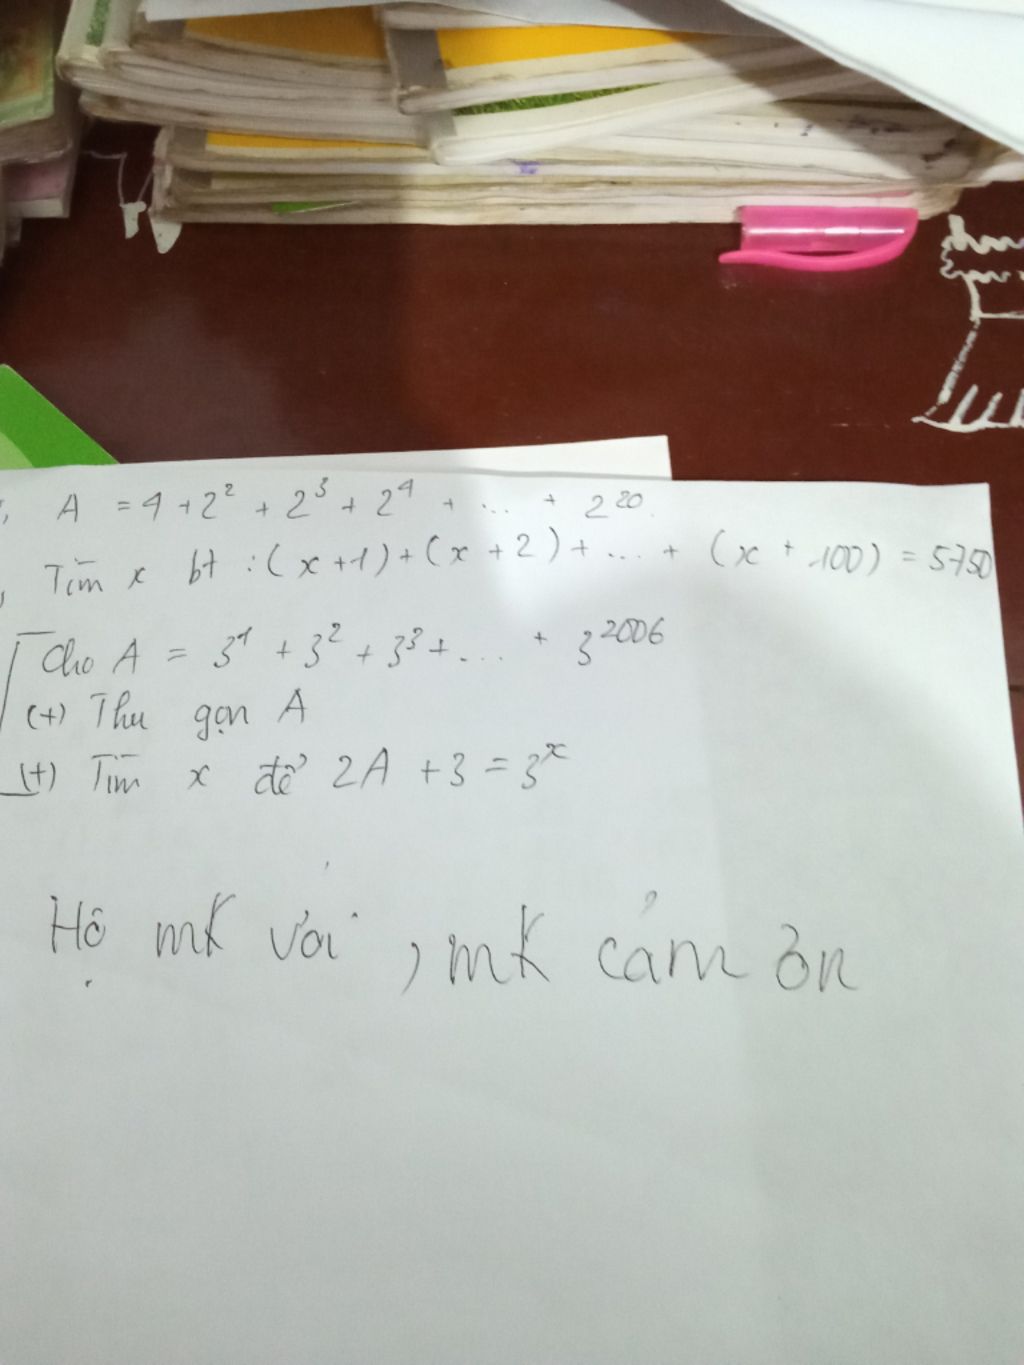 , A = 4 + 2² + 2³ + 2⁴ + ... + 2²⁰.
, Tìm x bt : (x + 1) + (x + 2) + ... + (x + 100) = 5750
Cho A = 3¹ + 3² + 3³ + ... + 3²⁰⁰⁶
(+) Thu gọn A
(+) Tìm x để 2A + 3 = 3ˣ
Hộ mk với, mk cảm ơn